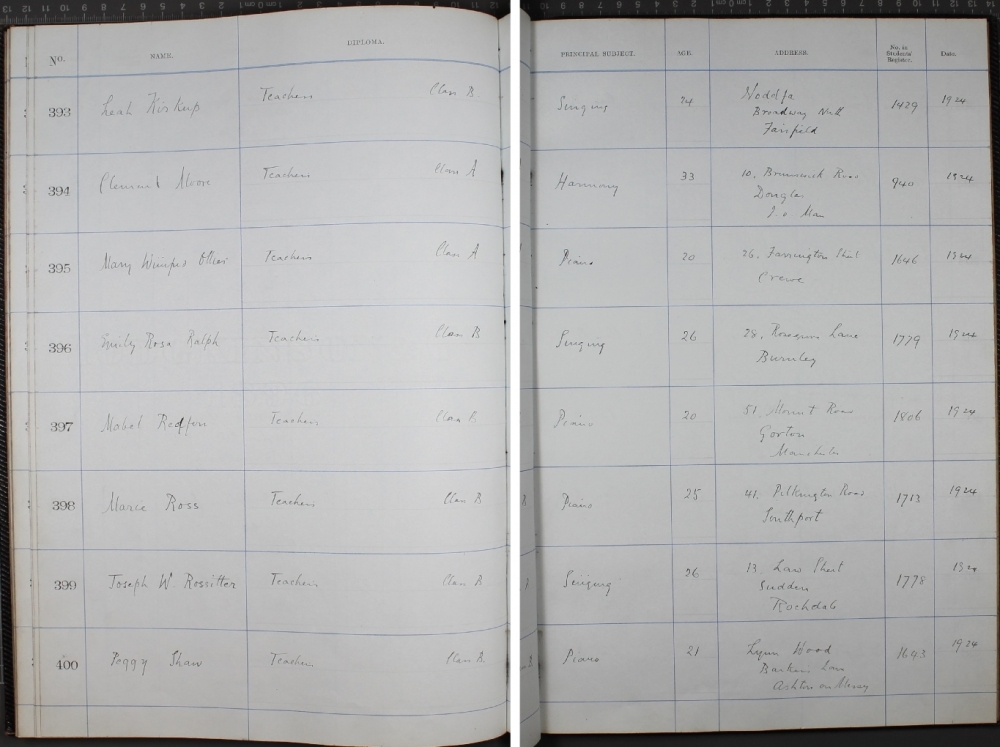 No. NAME. DIPLOMA. PRINCIPAL SUBJECT. AGE. ADDRESS. No. in Students' Register. Date.
393 Leah Kirkup Teachers Class B. Singing 24 Noddfa 1429 1924
Broadway
Fairfield
394 Clement Moore Teachers Class A Harmony 33 10, Brunswick Road 940 1924
Douglas
I. o Man
395 Mary Winifred Teachers Class A Piano 20 26, Farrington Street 1646 1924
Crewe
396 Emily Rosa Ralph Teachers Class B Singing 26 28, Lane 1779 1924
Burnley
397 Mabel Redfern Teachers Class B Piano 20 51, Mount Road 1806 1924
Gorton
Manchester
398 Marie Ross Teachers Class B Piano 25 41, Pilkington Road 1713 1924
Southport
399 Joseph W Rossitter Teachers Class B Singing 26 13, Law Street 1778 1924
Sudden
Rochdale
400 Peggy Shaw Teachers Class B. Piano 21 Lynn Wood 1643 1924
Barkers Lane
Ashton on Mersey